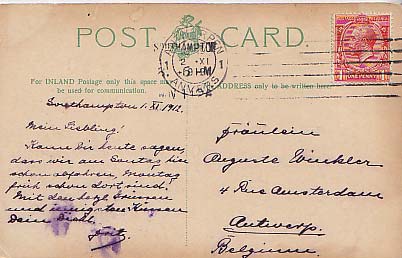 POST CARD.
SOUTHAMPTON
ANVERS
1
1
2 XI
ONE PENNY
For INLAND Postage only this space may
be used for communication.
The ADDRESS only to be written here
Southampton 1.XI.1912.
Mein Liebling!
Kann Dir heute sagen,
dass wir am Samstag hier
schon abfahren, Montag
früh schon dort sind!
Mit den herzl. Grüssen
und innigsten Küssen
Dein Dichl.
Fritz.
Fräulein
Auguste Winkler
4 Rue Amsterdam
Antwerp.
Belgium.